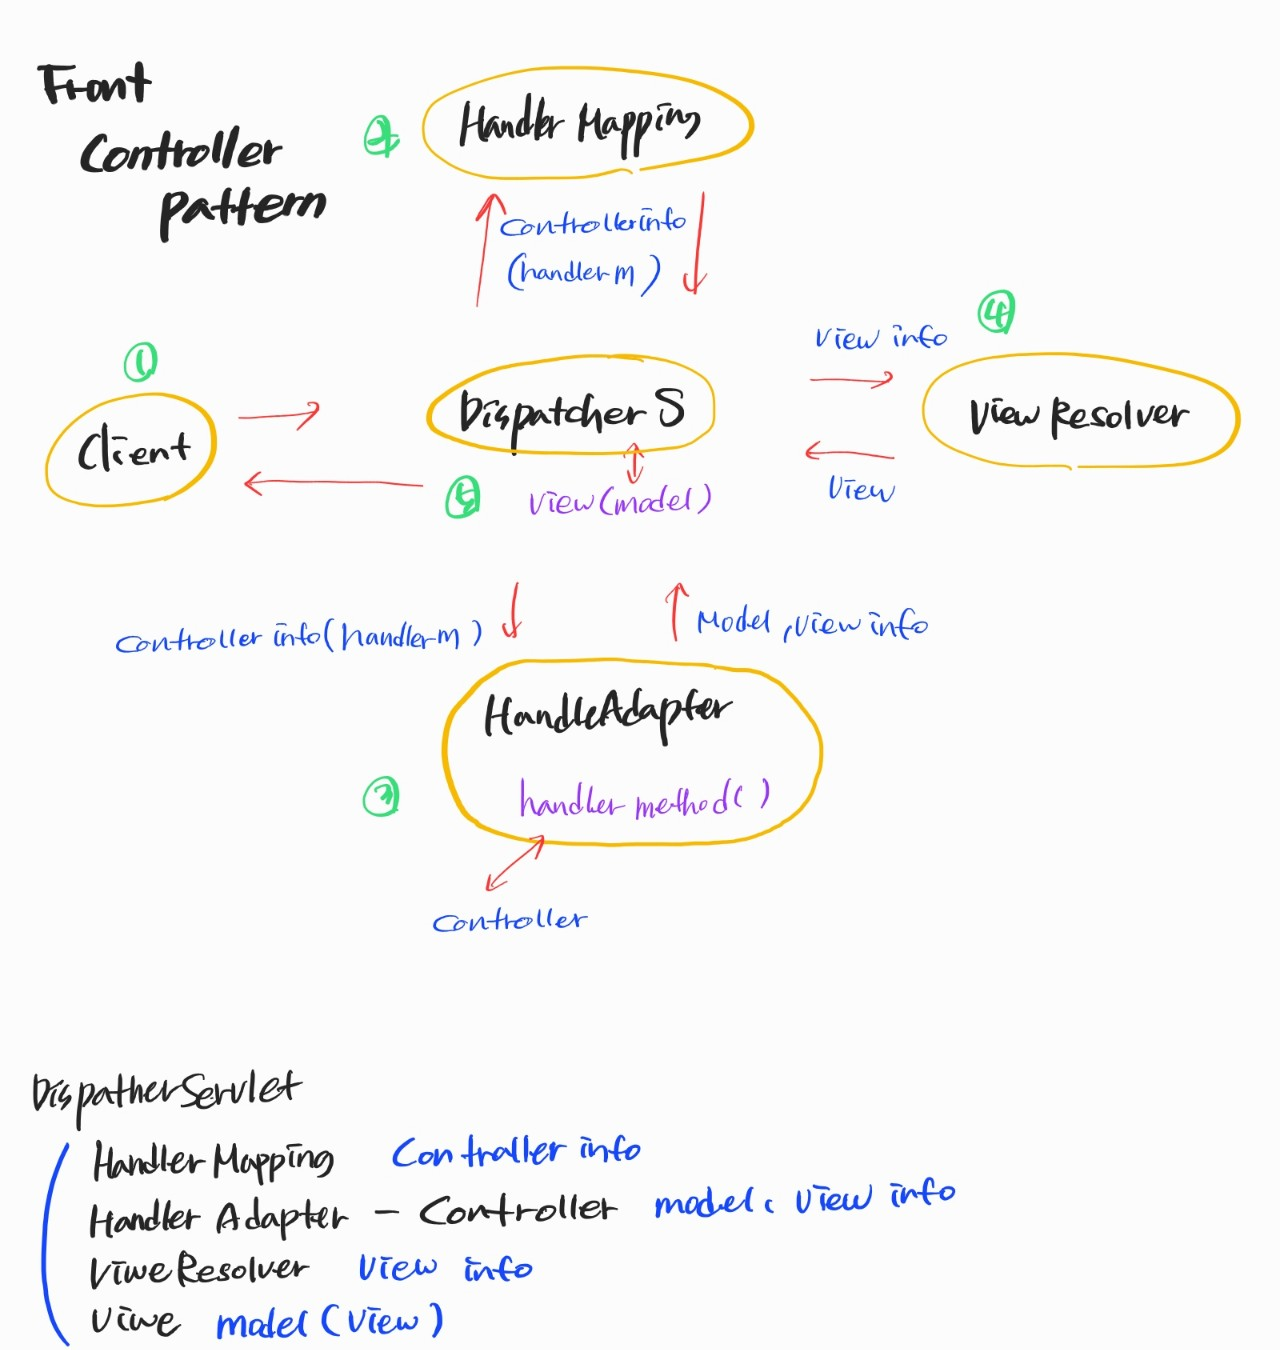 Front
Controller
pattern
②
Handler Mapping
Controllerinfo
(handler m)
④
View info
①
Client
Dispatcher S
View Resolver
View
⑤
View(model)
Controller info(handler m)
Model, View info
HandleAdapter
③
handler method()
Controller
DispatherServlet
Handler Mapping Controller info
Handler Adapter - Controller model, View info
ViweResolver View info
Viwe model(View)